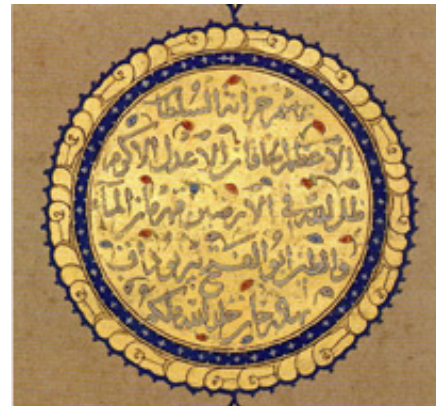 برسم خزانة السلطان
الاعظم الخاقان الاعدل الاكرم
ظل الله في الارضين قهرمان الماء
والطين ابو الفتح پير بوداق
بهادر خان خلد الله ملكه